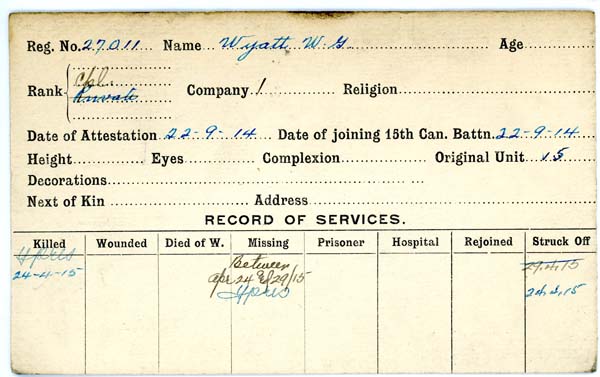 Reg. No. 27011 Name Wyatt W. G. Age
Cpl.
Rank Private Company 1 Religion
Date of Attestation 22-9-14 Date of joining 15th Can. Battn. 22-9-14
Height Eyes Complexion Original Unit 15
Decorations
Next of Kin Address
RECORD OF SERVICES.
Killed Wounded Died of W. Missing Prisoner Hospital Rejoined Struck Off
Ypres Between 29.4.15
24-4-15 Apr 24 & 29/15
Ypres 24.4.15